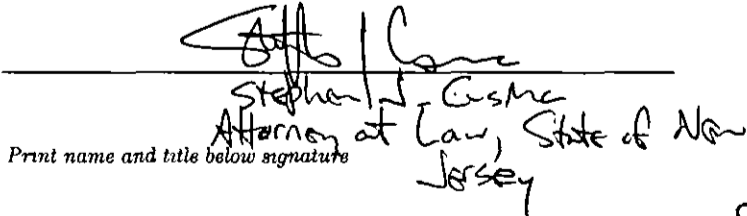 Stephen J. Cusma
Attorney at Law, State of New
Print name and title below signature
Jersey